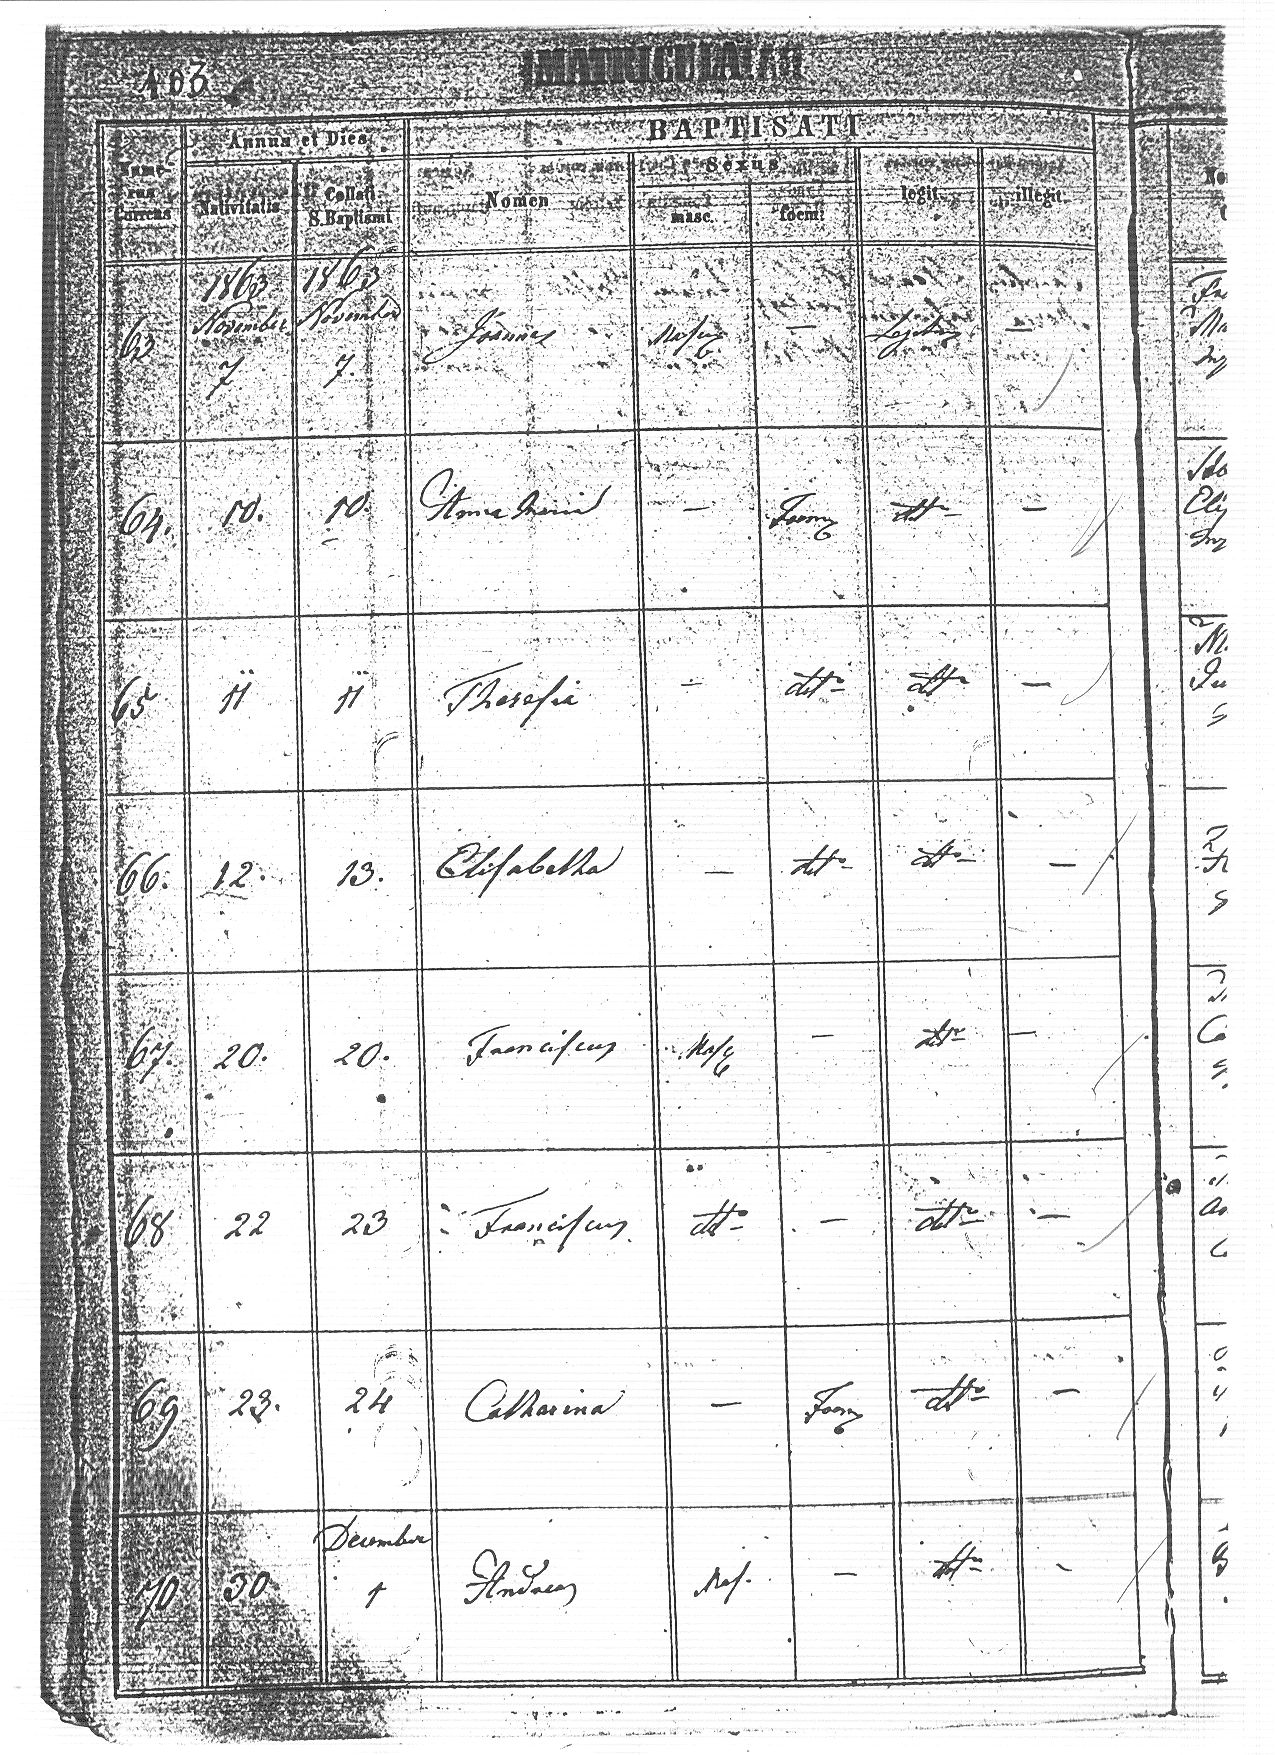 103
MATRICULA
BAPTISATI
Annus et Dies
Sexus
Nume-
rus
Currens
Nativitatis
Collati
S. Baptismi
Nomen
masc.
foem:
legit.
illegit.
1863 1863
November November
63 7 7. Joannes Masc — —
64. 10. 10. Anna Maria — Foem dtto —
65 11 11 Theresia — dtto dtto —
66. 12. 13. Elisabetha — dtto dtto —
67. 20. 20. Franciscus Masc — dtto —
68 22 23 Franciscus dtto — dtto —
69 23. 24 Catharina — Foem dtto —
December
70 30 1 Andreas Mas. — dtto -